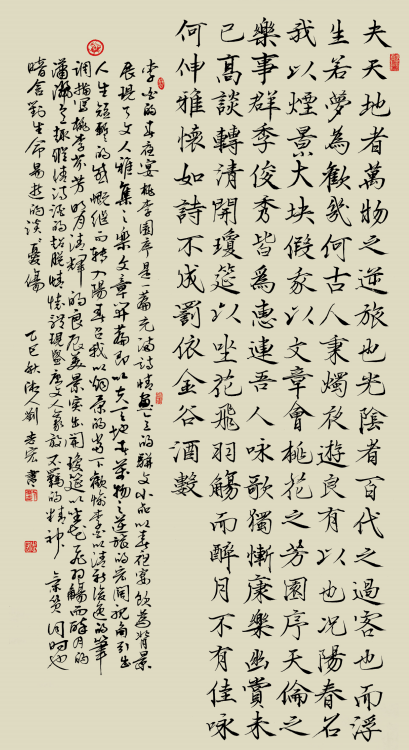 夫天地者萬物之逆旅也光陰者百代之過客也而浮
生若夢為歡幾何古人秉燭夜遊良有以也況陽春召
我以煙景大块假我以文章會桃花之芳園序天倫之
樂事群季俊秀皆為惠連吾人咏歌獨慚康樂幽賞未
已高談轉清開瓊筵以坐花飛羽觴而醉月不有佳咏
何伸雅懷如詩不成罰依金谷酒數
李白的春夜宴桃李園序是一篇充滿詩情畫意的駢文小品以春夜宴飲為背景
展現了文人雅集之樂文章開篇即以天地者萬物之逆旅的宏闊視角引出
人生短暫的感慨繼而轉入陽春召我以烟景的當下歡愉李白以清新俊逸的筆
調描寫桃李芬芳明月清輝的良辰美景突出開瓊筵以坐花飛羽觴而醉月的
瀟灑之趣雅詩酒的超脫情懷現盛唐文人豪放不羈的精神氣質同時也
暗含對生命易逝的淡淡憂傷
乙巳秋人劉書